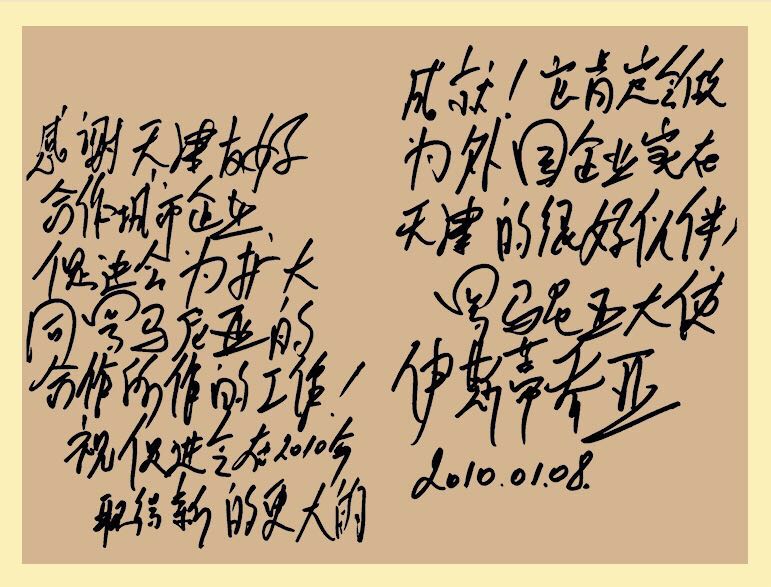 感谢天津友好
合作城市企业
促进会为扩大
同罗马尼亚的
合作所作的工作！
祝促进会在2010年
取得新的更大的
成就！它肯定会做
为外国企业家在
天津的很好伙伴，
罗马尼亚大使
伊斯蒂乔亚
2010.01.08.